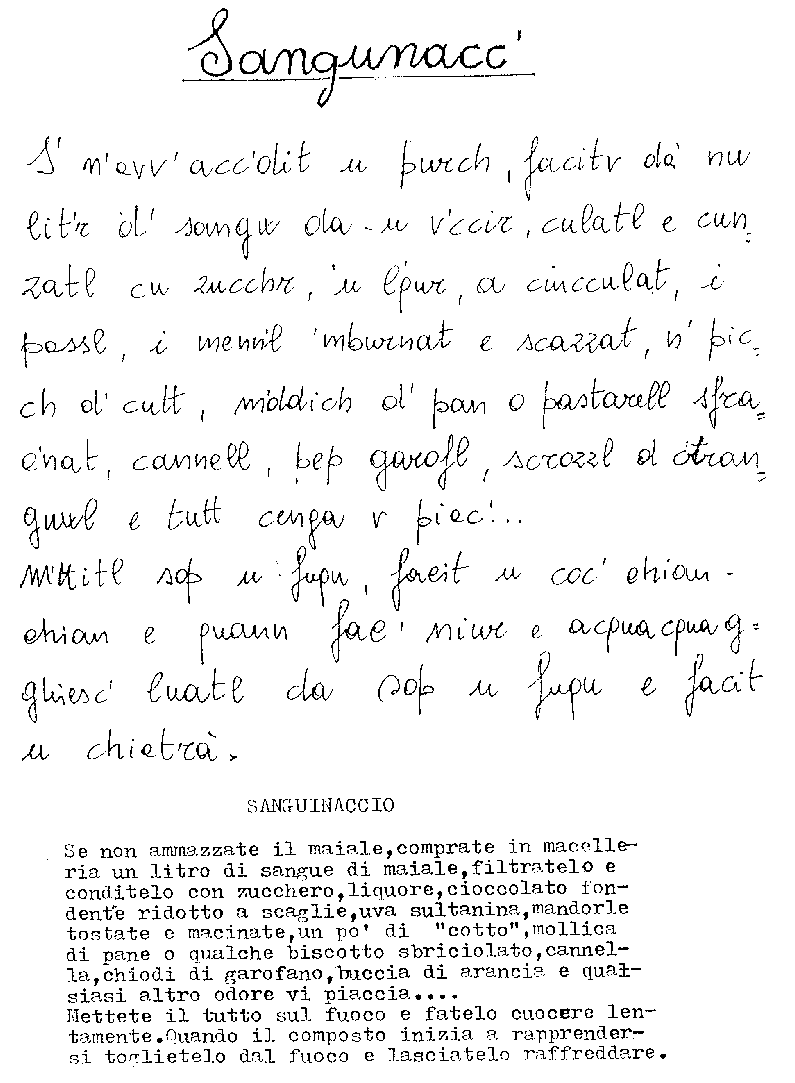 Sangunacc'
S' n'avv' acc'dit u purch, facitv dà nu
lit'r d' sangu da-u v'ccir, culatl e cun=
zatl cu zucchr, 'u l'pur, a cincculat, i
passl, i mennl 'mburnat e scazzat, n' pic=
ch d' cutt, m'ddich d' pan o pastarell sfra=
c'nat, cannell, pep garofl, scrozzl d tran=
guel e tutt cenga v piac'...
M'ttitl sop u fupu, facit u coc' chian-
chian e quann fac' niur e acquacquag=
ghiesc' luatl da sop u fupu e facit
u chiatrà.
SANGUINACCIO
Se non ammazzate il maiale,comprate in macelle-
ria un litro di sangue di maiale,filtratelo e
conditelo con zucchero,liquore,cioccolato fon-
dente ridotto a scaglie,uva sultanina,mandorle
tostate e macinate,un po' di "cotto",mollica
di pane o qualche biscotto sbriciolato,cannel-
la,chiodi di garofano,buccia di arancia e qual-
siasi altro odore vi piaccia....
Mettete il tutto sul fuoco e fatelo cuocere len-
tamente.Quando il composto inizia a rapprender-
si toglietelo dal fuoco e lasciatelo raffreddare.